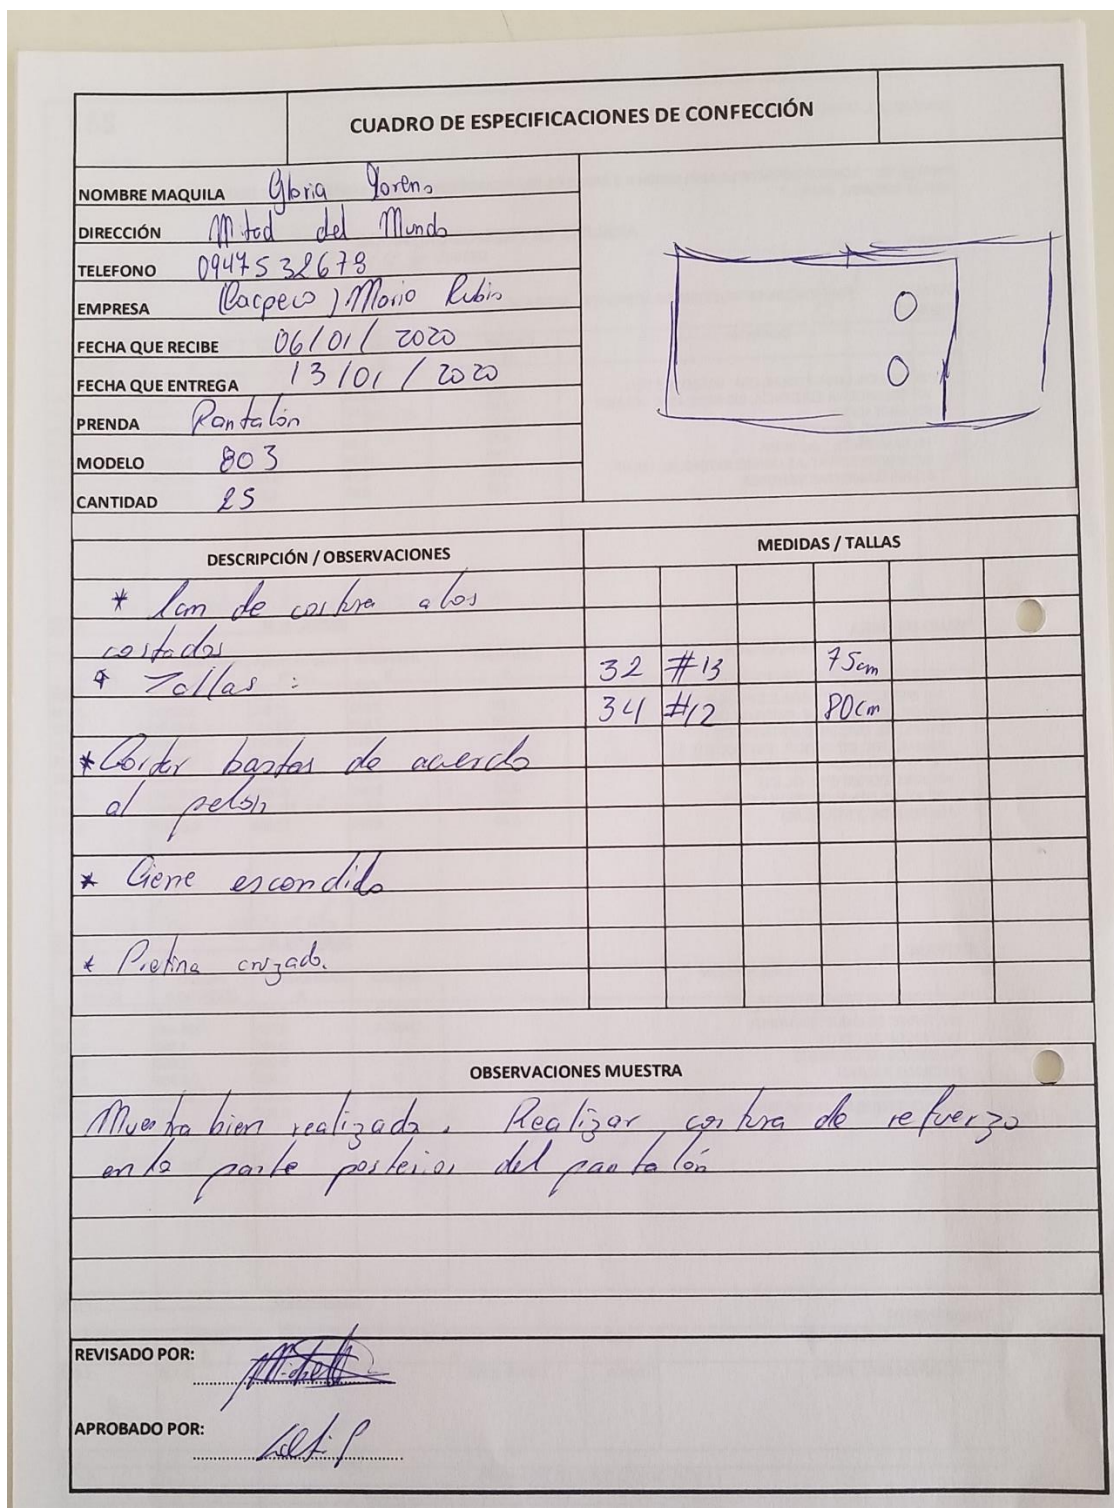 CUADRO DE ESPECIFICACIONES DE CONFECCIÓN
NOMBRE MAQUILA Gloria
DIRECCIÓN Mitad del Mundo
TELEFONO
EMPRESA Mario Rubio
FECHA QUE RECIBE 06/01/2020
FECHA QUE ENTREGA 13/01/2020
PRENDA Pantalón
MODELO 803
CANTIDAD 25
DESCRIPCIÓN / OBSERVACIONES MEDIDAS / TALLAS
* de costura a los
costados
* Tallas :
32 #13 75cm
34 #12 80cm
* bastas de acuerdo
al pelón
* escondido
* Pretina cruzado.
OBSERVACIONES MUESTRA
Muestra bien realizada. Realizar costura de refuerzo
en la parte posterior del pantalón
REVISADO POR:
APROBADO POR: